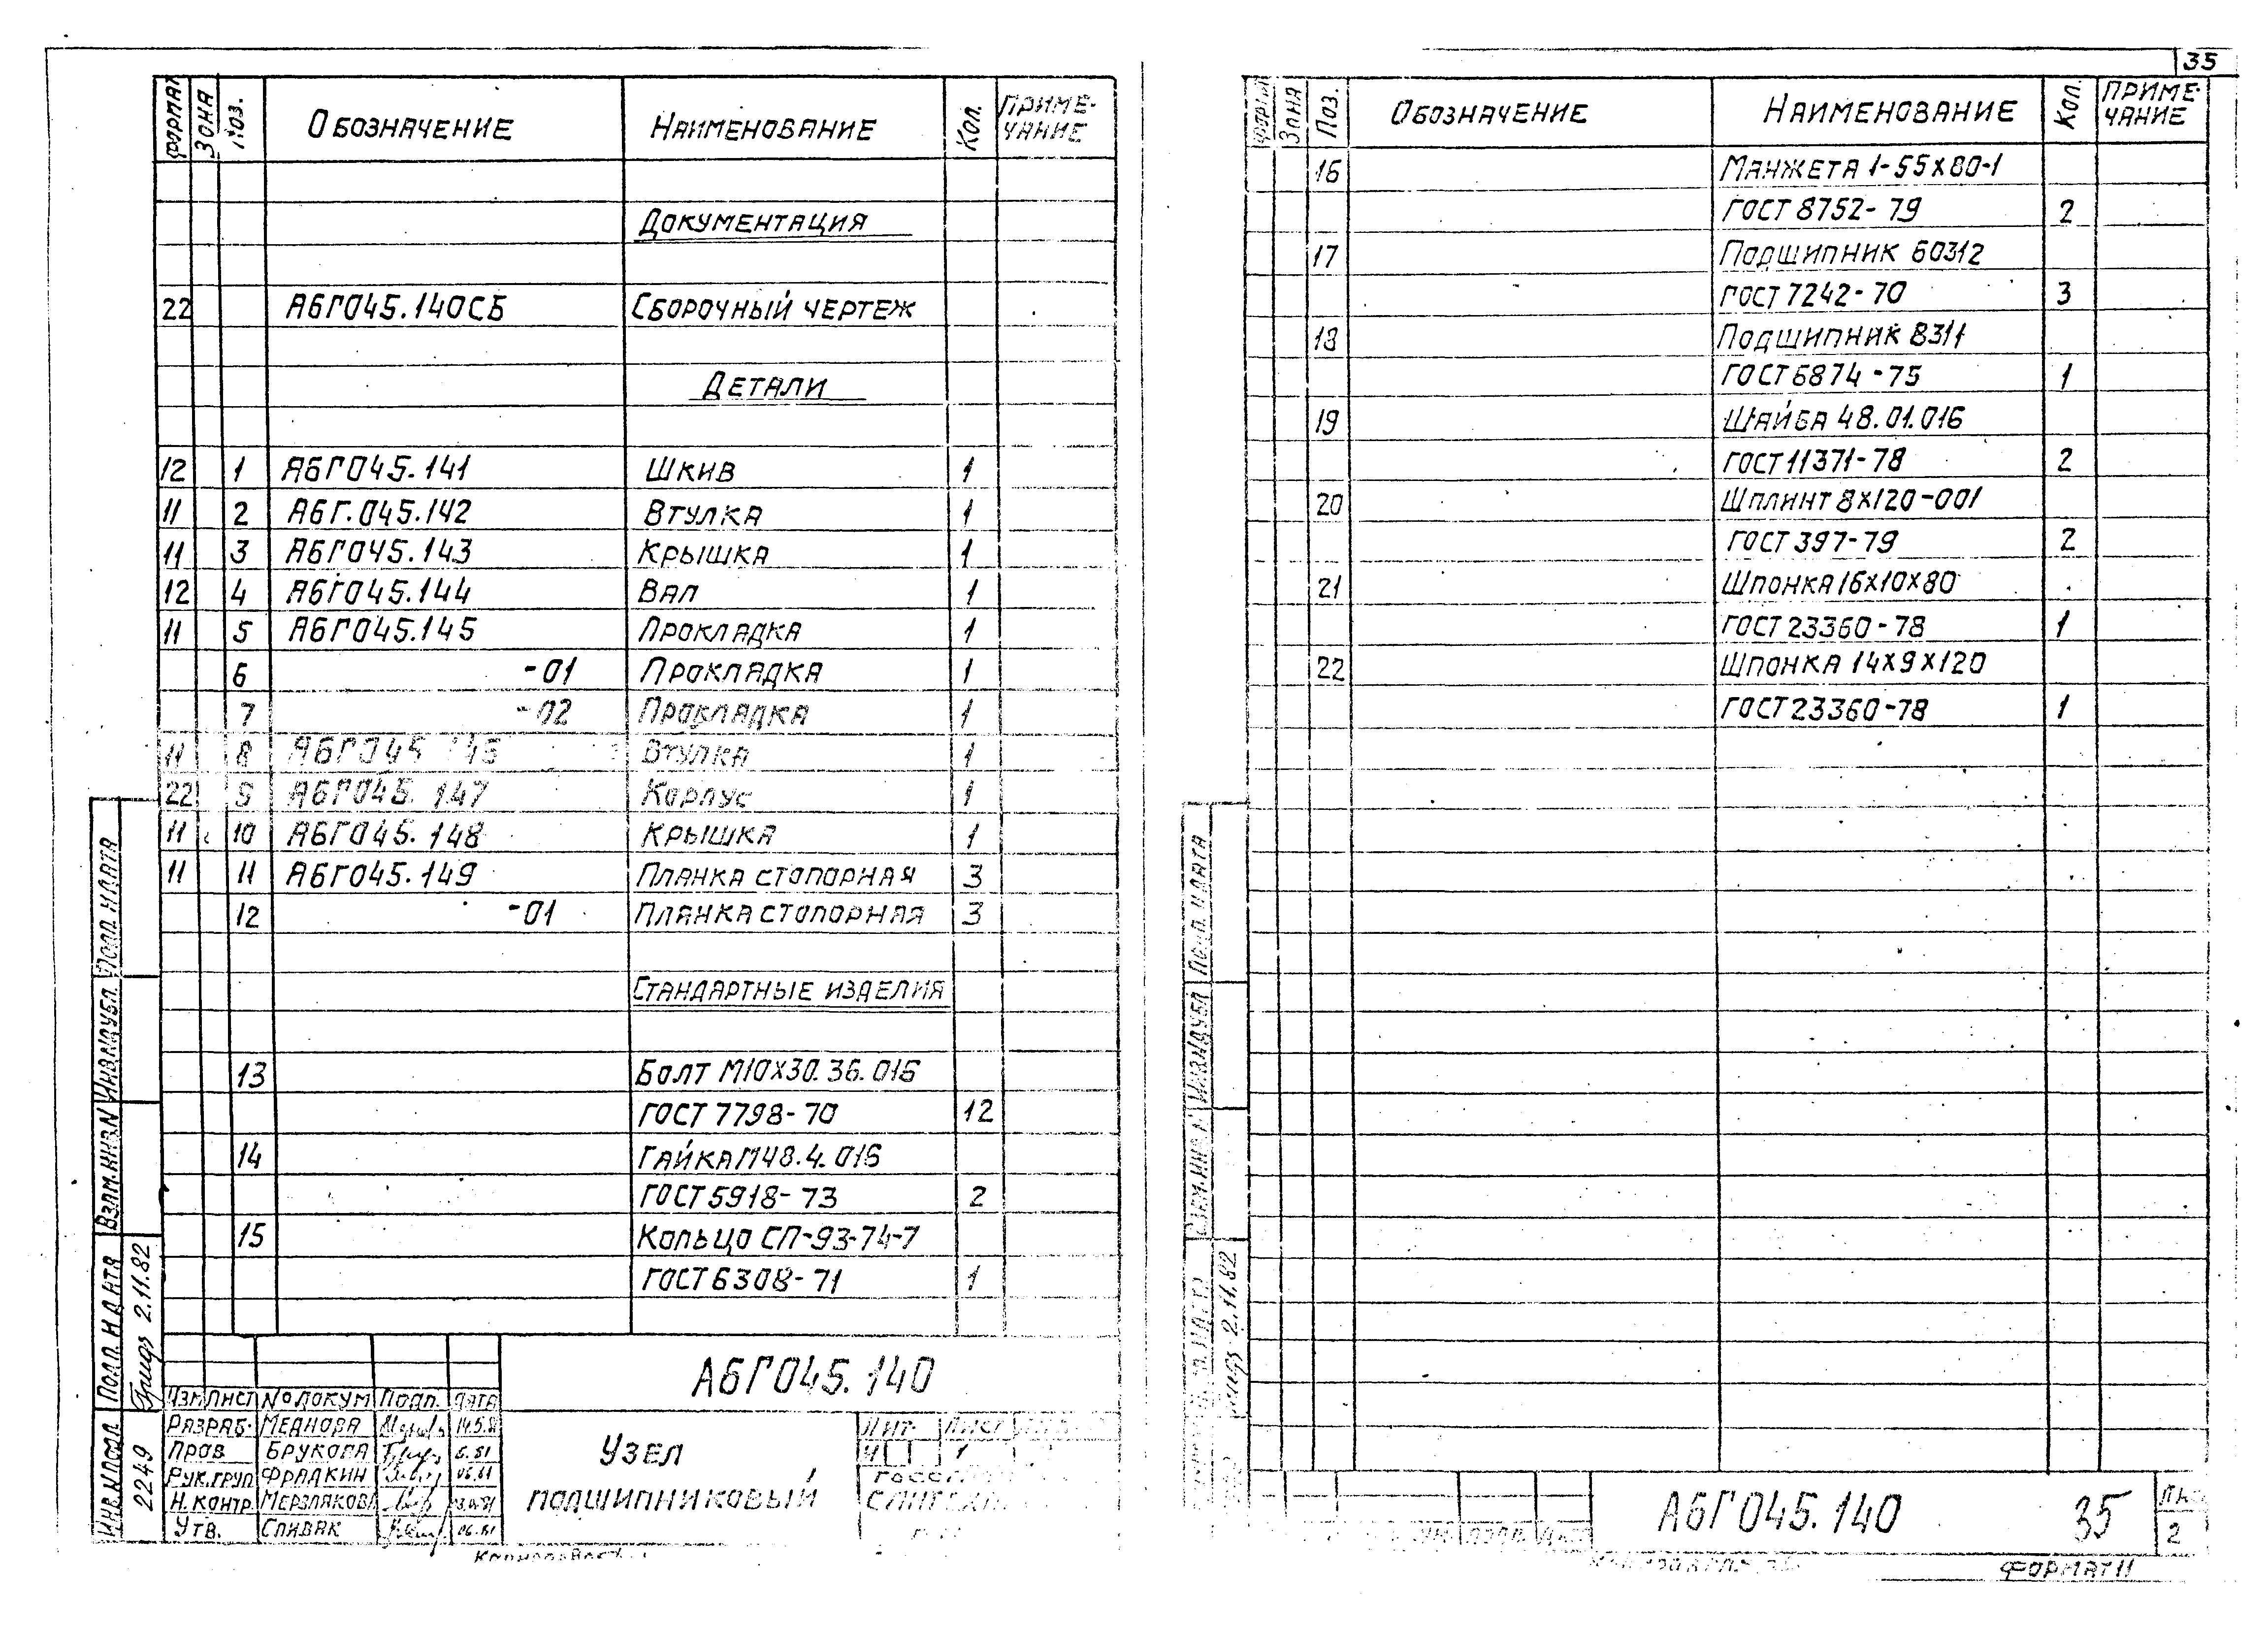 Формат Зона Поз. Обозначение Наименование Кол. Приме-
чание
Документация
22 АБГ045.140СБ Сборочный чертеж
Детали
12 1 АБГ045.141 Шкив 1
11 2 АБГ.045.142 Втулка 1
11 3 АБГ045.143 Крышка 1
12 4 АБГ045.144 Вал 1
11 5 АБГ045.145 Прокладка 1
6 -01 Прокладка 1
7 -02 Прокладка 1
11 8 АБГ045.146 Втулка 1
22 9 АБГ045.147 Корпус 1
11 10 АБГ045.148 Крышка 1
11 11 АБГ045.149 Планка стопорная 3
12 -01 Планка стопорная 3
Стандартные изделия
13 Болт М10х30.36.016
ГОСТ 7798-70 12
14 Гайка М48.4.016
ГОСТ 5918-73 2
15 Кольцо СП-93-74-7
ГОСТ 6308-71 1
Подп. и дата
Инв.№дубл.
Взам.инв№
Подп. и дата 2.11.82
Инв.№подл 2249
АБГ045.140
Изм Лист № докум Подп. Дата
Разраб. Меднова
Пров Брукова 6.81
Рук.груп Фрадкин 06.81
Н.контр. Мерзлякова
Утв. Спивак 06.81
Узел
подшипниковый
Лит. Лист
И 1
Копировал
35
Формат Зона Поз. Обозначение Наименование Кол. Приме-
чание
16 Манжета 1-55х80-1
ГОСТ 8752-79 2
17 Подшипник 60312
ГОСТ 7242-70 3
18 Подшипник 8311
ГОСТ 6874-75 1
19 Шайба 48.01.016
ГОСТ 11371-78 2
20 Шплинт 8х120-001
ГОСТ 397-79 2
21 Шпонка 16х10х80
ГОСТ 23360-78 1
22 Шпонка 14х9х120
ГОСТ 23360-78 1
Подп. и дата
Инв№дубл
Взам.инв№
2.11.82
АБГ045.140 35 Лист
2
Формат 11